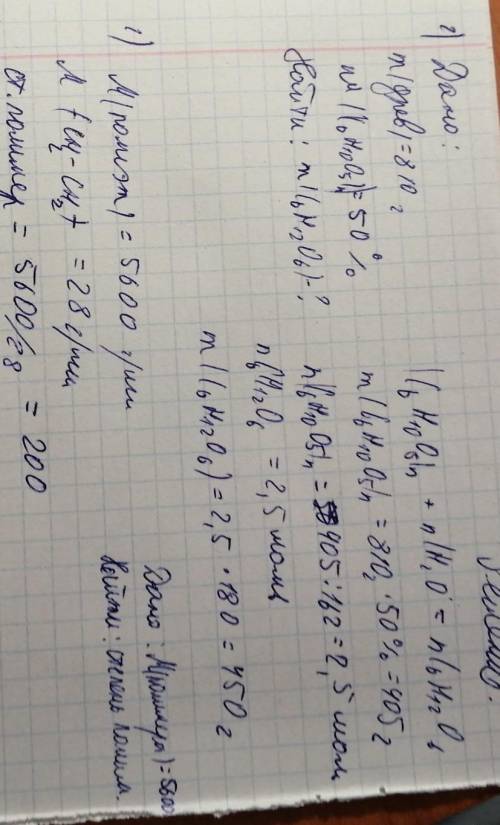 2) Дано:
m(древ) = 810 г
(C6H10O5)n = 50%
Найти: m(C6H12O6) - ?
Решение.
(C6H10O5)n + nH2O = nC6H12O6
m(C6H10O5)n = 810 · 50% = 405 г
n(C6H10O5)n = 405 : 162 = 2,5 моль
nC6H12O6 = 2,5 моль
m(C6H12O6) = 2,5 · 180 = 450 г
1)
M(полиэт) = 5600 г/моль
M (CH2-CH2) = 28 г/моль
ст. полимер = 5600/28 = 200
Дано: M(полимера) = 5600
Найти: степень полим.